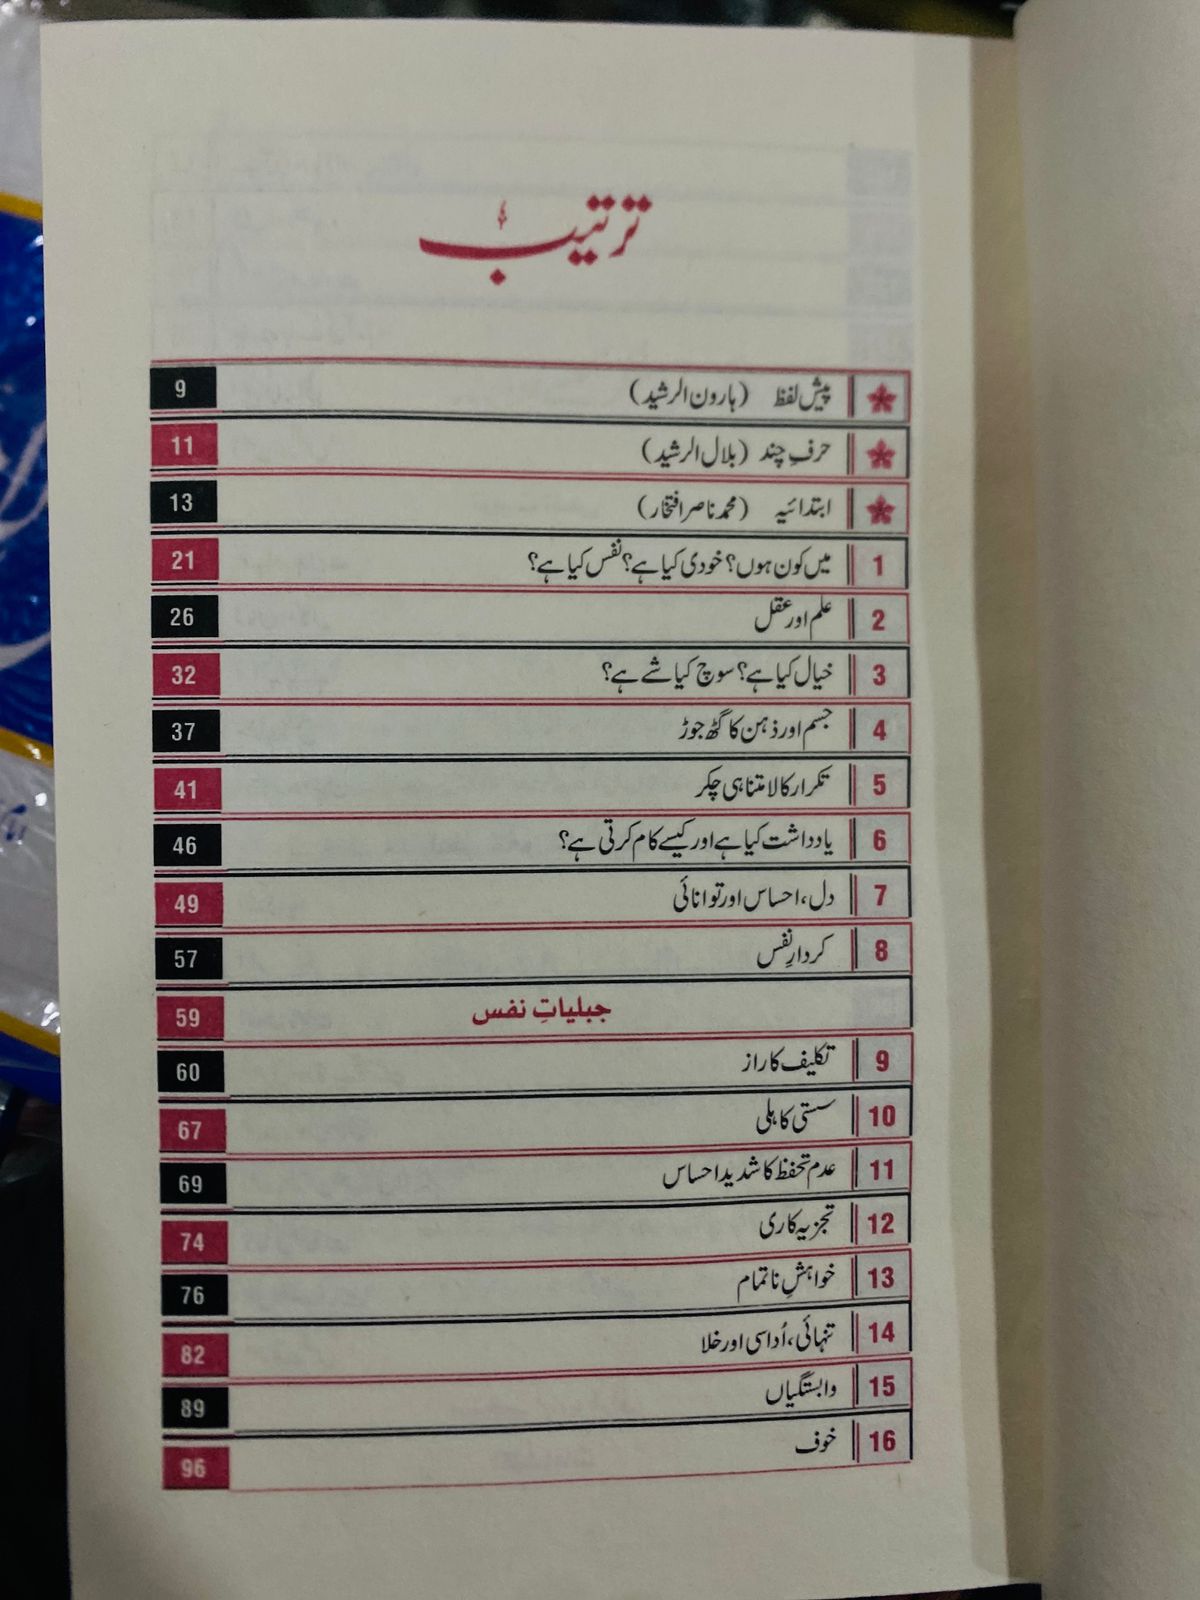 ترتیب
پیش لفظ (ہارون الرشید) 9
حرفِ چند (بلال الرشید) 11
ابتدائیہ (محمد ناصر افتخار) 13
1 میں کون ہوں؟ خودی کیا ہے؟ نفس کیا ہے؟ 21
2 علم اور عقل 26
3 خیال کیا ہے؟ سوچ کیا شے ہے؟ 32
4 جسم اور ذہن کا گٹھ جوڑ 37
5 تکرار کا لامتناہی چکر 41
6 یادداشت کیا ہے اور کیسے کام کرتی ہے؟ 46
7 دل، احساس اور توانائی 49
8 کردارِ نفس 57
جبلیاتِ نفس 59
9 تکلیف کا راز 60
10 سستی کاہلی 67
11 عدم تحفظ کا شدید احساس 69
12 تجزیہ کاری 74
13 خواہشِ ناتمام 76
14 تنہائی، اُداسی اور خلا 82
15 وابستگیاں 89
16 خوف 96